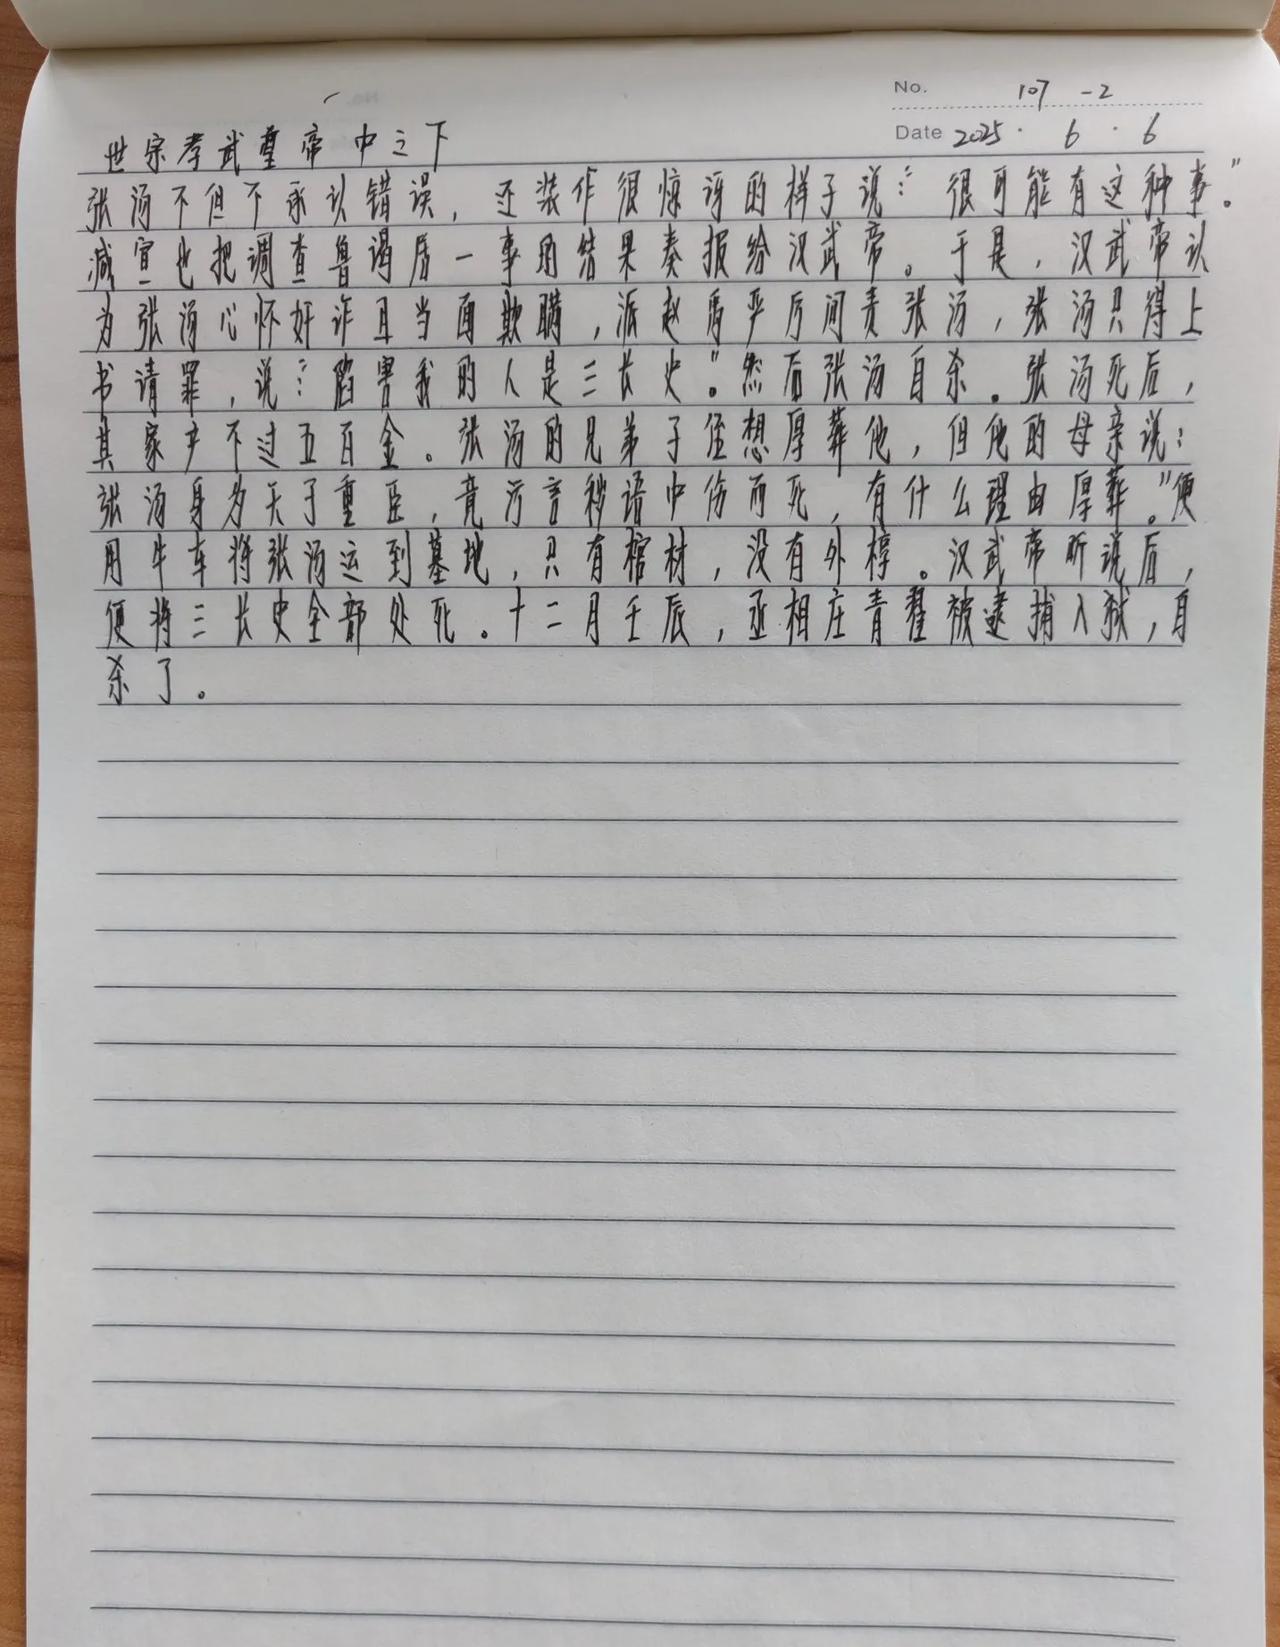 No. 107-2
Date 2025 · 6 · 6
世宗孝武皇帝中之下
张汤不但不承认错误，还装作很惊讶的样子说：“很可能有这种事。”
减宣也把调查鲁谒居一事的结果奏报给汉武帝。于是，汉武帝认
为张汤心怀奸诈且当面欺瞒，派赵禹严厉问责张汤，张汤只得上
书请罪，说：“陷害我的人是三长史”。然后张汤自杀。张汤死后，
其家产不过五百金。张汤的兄弟子侄想厚葬他，但他的母亲说：
张汤身为天子重臣，竟污言秽语中伤而死，有什么理由厚葬。”便
用牛车将张汤运到墓地，只有棺材，没有外椁。汉武帝听说后，
便将三长史全部处死。十二月壬辰，丞相庄青翟被逮捕入狱，自
杀了。